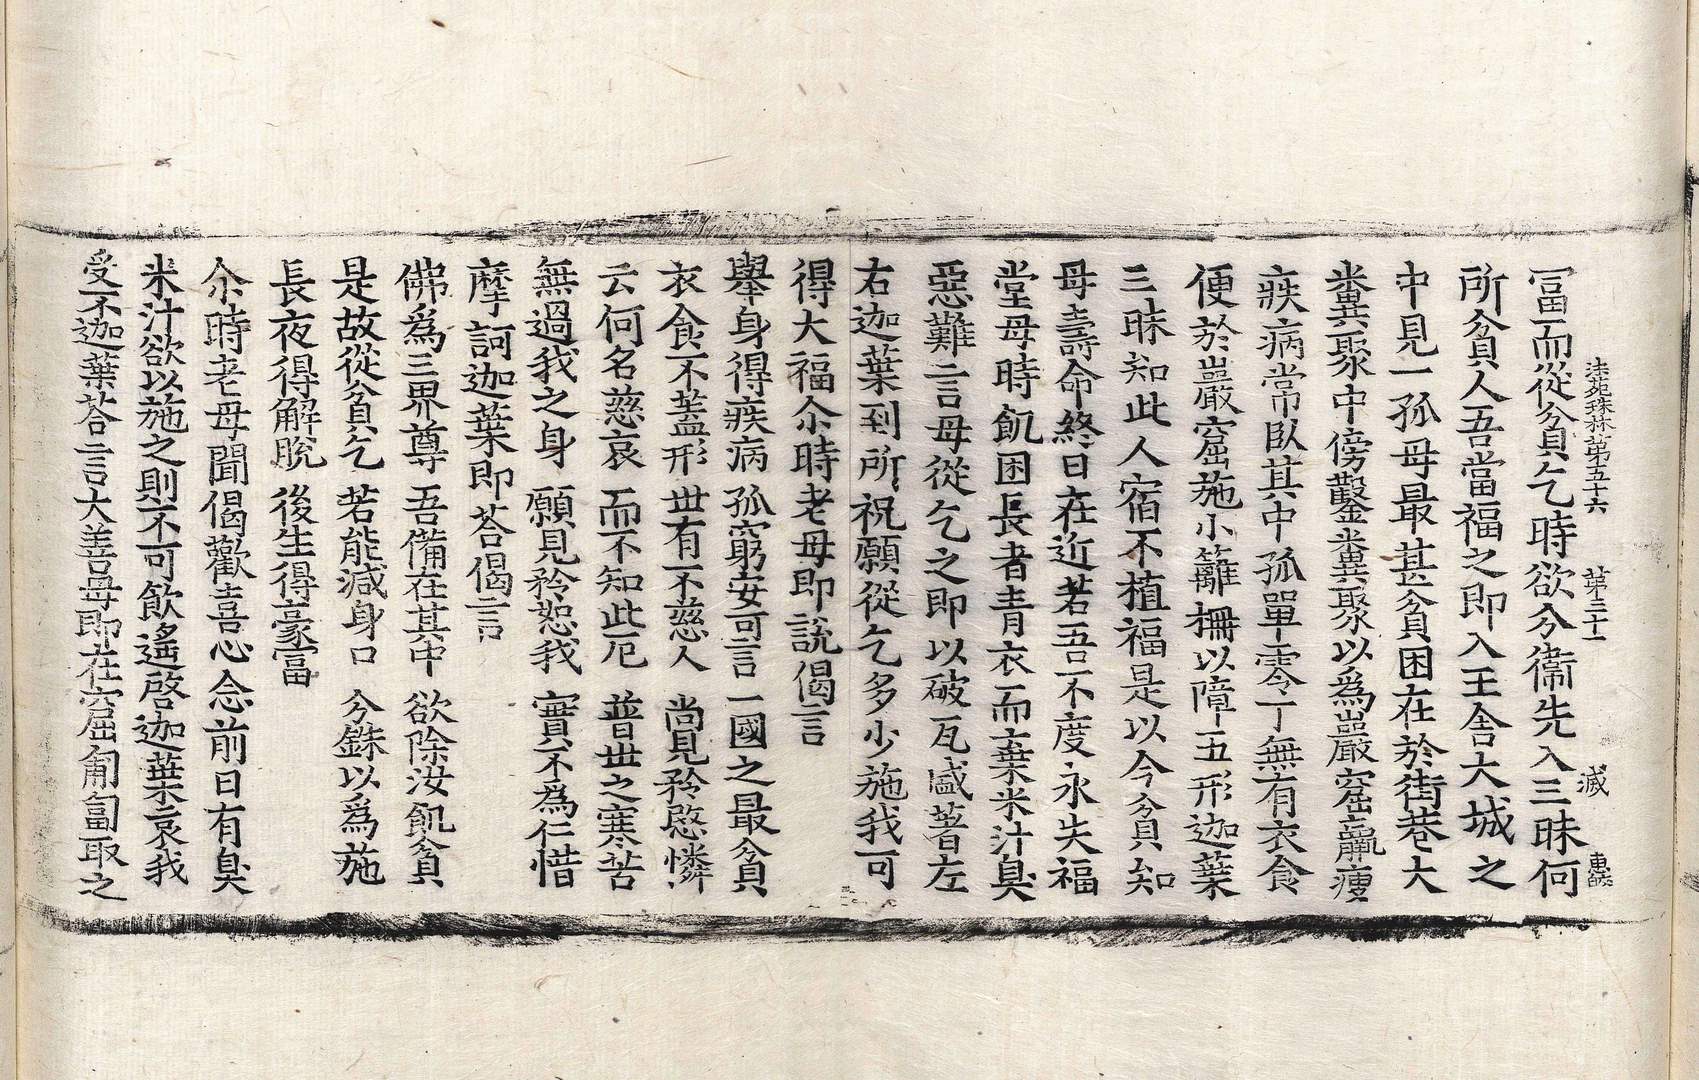 法苑珠林第五十六 第三十一 滅
冨而從貧乞時欲分衞先入三昧何
所貧人吾當福之即入王舎大城之
中見一孤母最甚貧困在於街巷大
糞聚中傍鑿糞聚以爲巖窟羸痩
疾病常臥其中孤單零丁無有衣食
便於巖窟施小籬柵以障五形迦葉
三昧知此人宿不植福是以今貧知
母壽命終日在近若吾不度永失福
堂母時飢困長者青衣而棄米汁臭
惡難言母從乞之即以破瓦盛著左
右迦葉到所祝願從乞多少施我可
得大福尒時老母即說偈言
舉身得疾病 孤窮安可言 一國之最貧
衣食不蓋形 世有不慈人 尚見矜愍憐
云何名慈哀 而不知此厄 普世之寒苦
無過我之身 願見矜恕我 實不為仁惜
摩訶迦葉即荅偈言
佛爲三界尊 吾備在其中 欲除汝飢貧
是故從貧乞 若能減身口 分銖以爲施
長夜得解脫 後生得豪富
尒時老母聞偈歡喜心念前日有臭
米汁欲以施之則不可飲遙啓迦葉哀我
受不迦葉荅言大善母即在窟匍匐取之